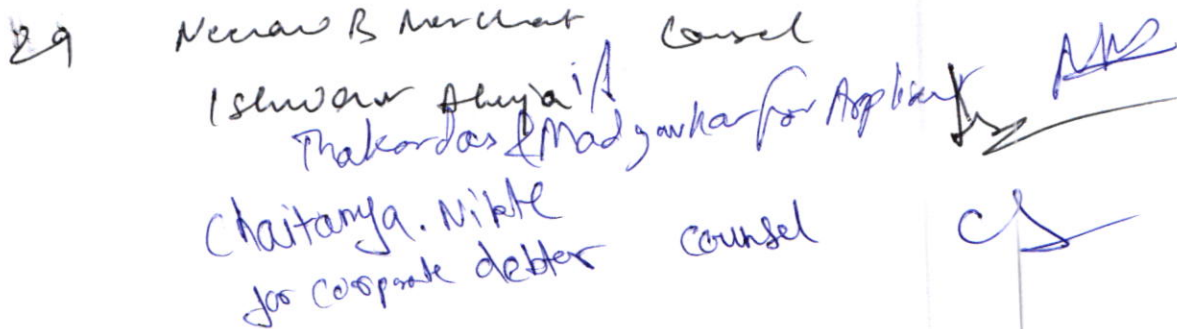 29 Neerav B Merchant Counsel
Ishwar Ahuja i/b
Thakordas & Madgavkar for Applicant
Chaitanya. Nikte
for corporate debtor counsel